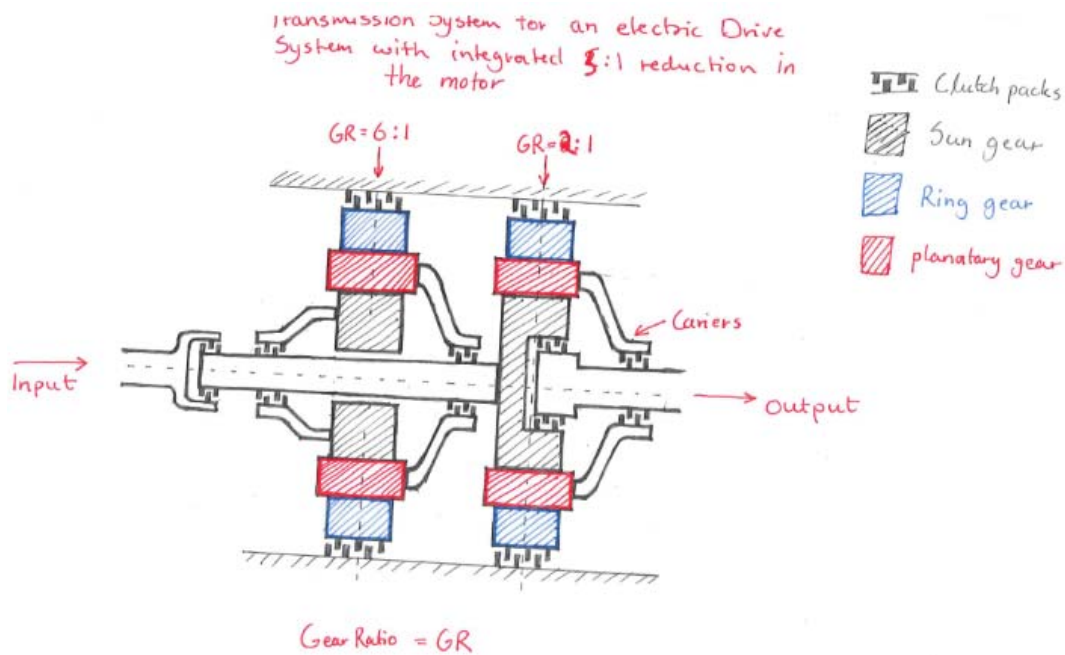 Transmission System for an electric Drive
System with integrated 5:1 reduction in
the motor
GR=6:1
GR=2:1
Clutch packs
Sun gear
Ring gear
planatary gear
Carriers
Input
Output
Gear Ratio = GR